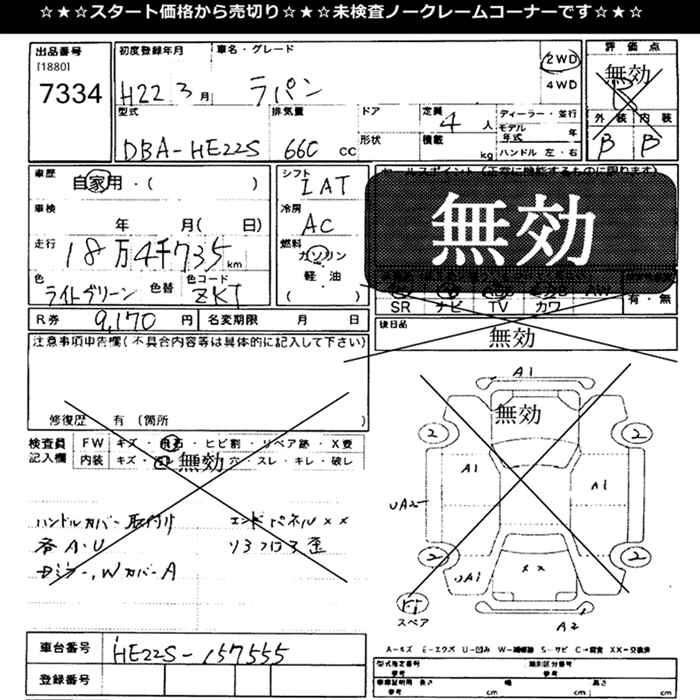 ☆★☆★スタート価格から売切り☆★☆★未検査ノークレームコーナーです☆★☆
出品番号 初度登録年月 車名・グレード 評価点
[1880]
7334 H22 3月 ラパン 2WD 無効
4WD R
型式 排気量 ドア 定員 ディーラー・並行 外装 内装
4人 モデル年式 年 B B
DBA-HE22S 660 cc 形状 積載 kg ハンドル 左・右
車歴 シフト セールスポイント(正常に機能するものに限ります)
自家用・( ) IAT
車検 冷房 無効
年 月( 日) AC
走行 燃料
18万4千735km ガソリン
色 色替 色コード 軽・油
ライトグリーン ZKT ( ) SR ナビ TV カワ AW 有・無
R券 9,170 円 名変期限 月 日 後日品 無効
注意事項申告欄(不具合内容等は具体的に記入して下さい)
A1
無効
修復歴 有(箇所 )
2 2
検査員 FW キズ・飛石・ヒビ割・リペア跡・X要
記入欄 内装 キズ・ 無効 穴・スレ・キレ・破レ
A1 A1
UA2
ハンドルカバー取付け エンドパネルXX
各A・U リヤフロア歪
2 2
UA1 XX
スペア
A2
車台番号 HE22S-157555
A-キズ E-エクボ U-凹み W-補修跡 S-サビ C-腐食 XX-交換済
登録番号 型式指定番号 類別区分番号
参考 参考
車庫証明用 長さ 幅 高さ
参考 cm cm cm